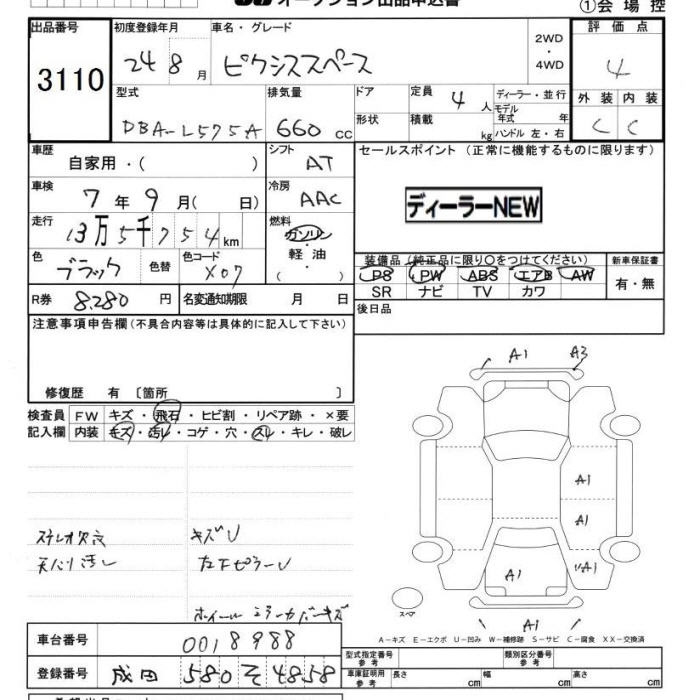 オークション出品申込書
①会場控
出品番号 3110
初度登録年月 24 8月
車名・グレード ピクシススペース
2WD・4WD
評価点 4
外装 内装
C C
型式 DBA-L575A
排気量 660 CC
ドア
形状
定員 4人
積載 kg
ディーラー・並行
モデル年式 年
ハンドル 左・右
車歴 自家用・( )
シフト AT
セールスポイント (正常に機能するものに限ります)
ディーラーNEW
車検 7年9月( 日)
冷房 AAC
走行 13万5千754km
燃料 ガソリン・軽油・( )
色 ブラック 色替
色コード X07
装備品 (純正品に限り○をつけてください)
新車保証書
PS PW ABS エアB AW
SR ナビ TV カワ
有・無
R券 8,280円
名変通知期限 月 日
後日品
注意事項申告欄(不具合内容等は具体的に記入して下さい)
修復歴 有 〔箇所 〕
検査員記入欄
FW キズ・飛石・ヒビ割・リペア跡・×要
内装 キズ・汚レ・コゲ・穴・スレ・キレ・破レ
A1 A3
A1
A1
A1 A1
A1
スペア
ステレオ欠品 キズU
天バリ汚し 左下ピラーU
ホイールミラーカバーキズ
A－キズ E－エクボ U－凹み W－補修跡 S－サビ C－腐食 XX－交換済
車台番号 0018988
登録番号 成田 580 そ 4858
型式指定番号 参考
類別区分番号 参考
車庫証明用 参考 長さ cm 幅 cm 高さ cm